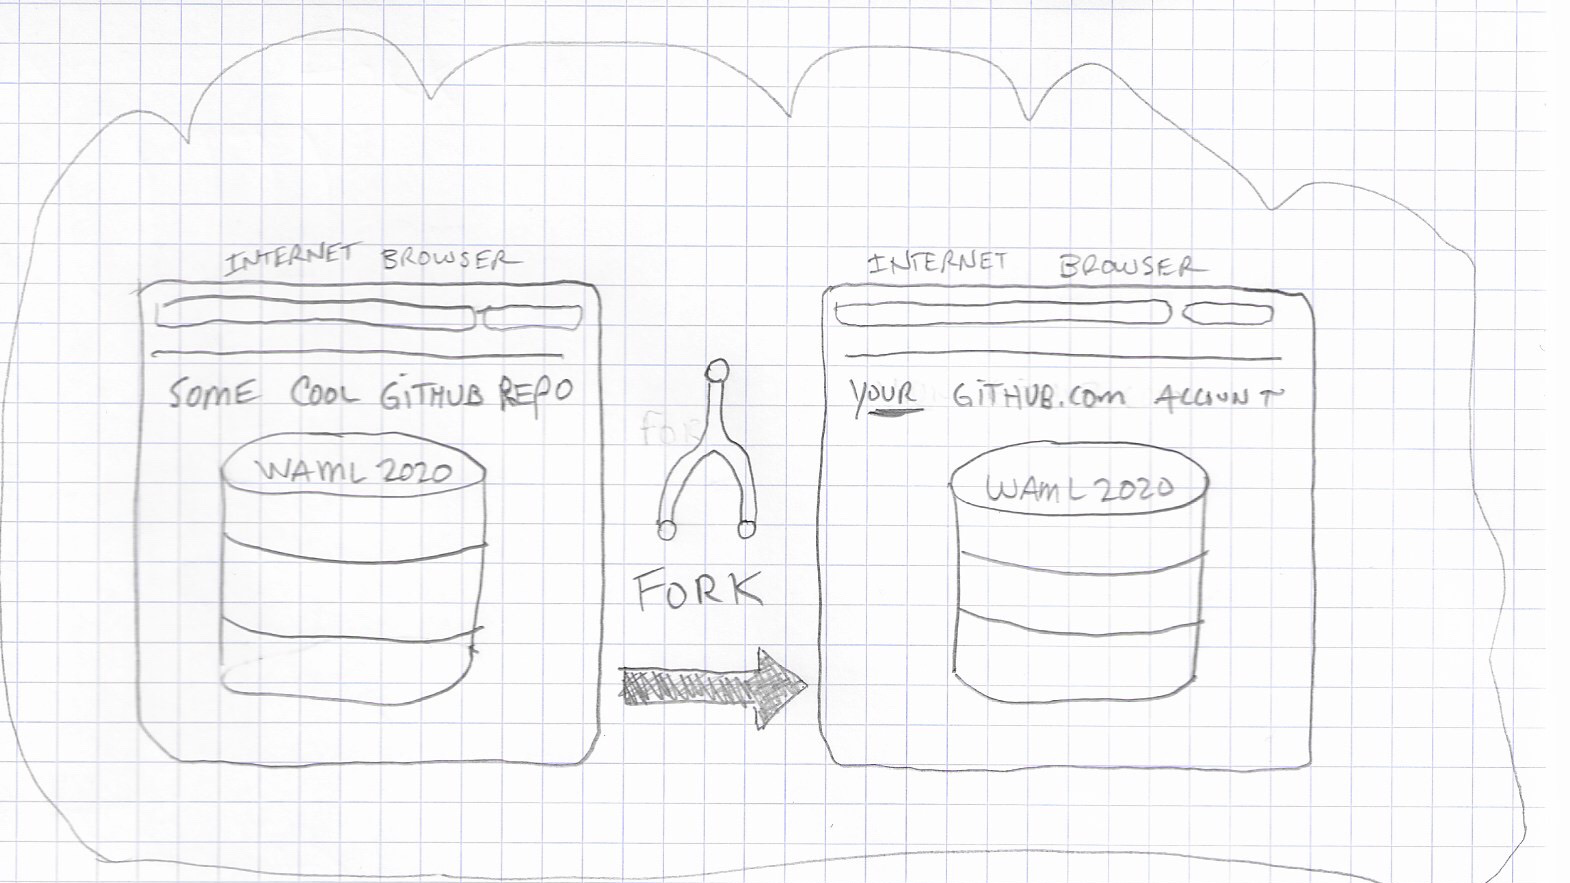 INTERNET BROWSER
SOME COOL GITHUB REPO
WAML 2020
FOR
FORK
INTERNET BROWSER
YOUR GITHUB.COM ACCOUNT
WAML 2020